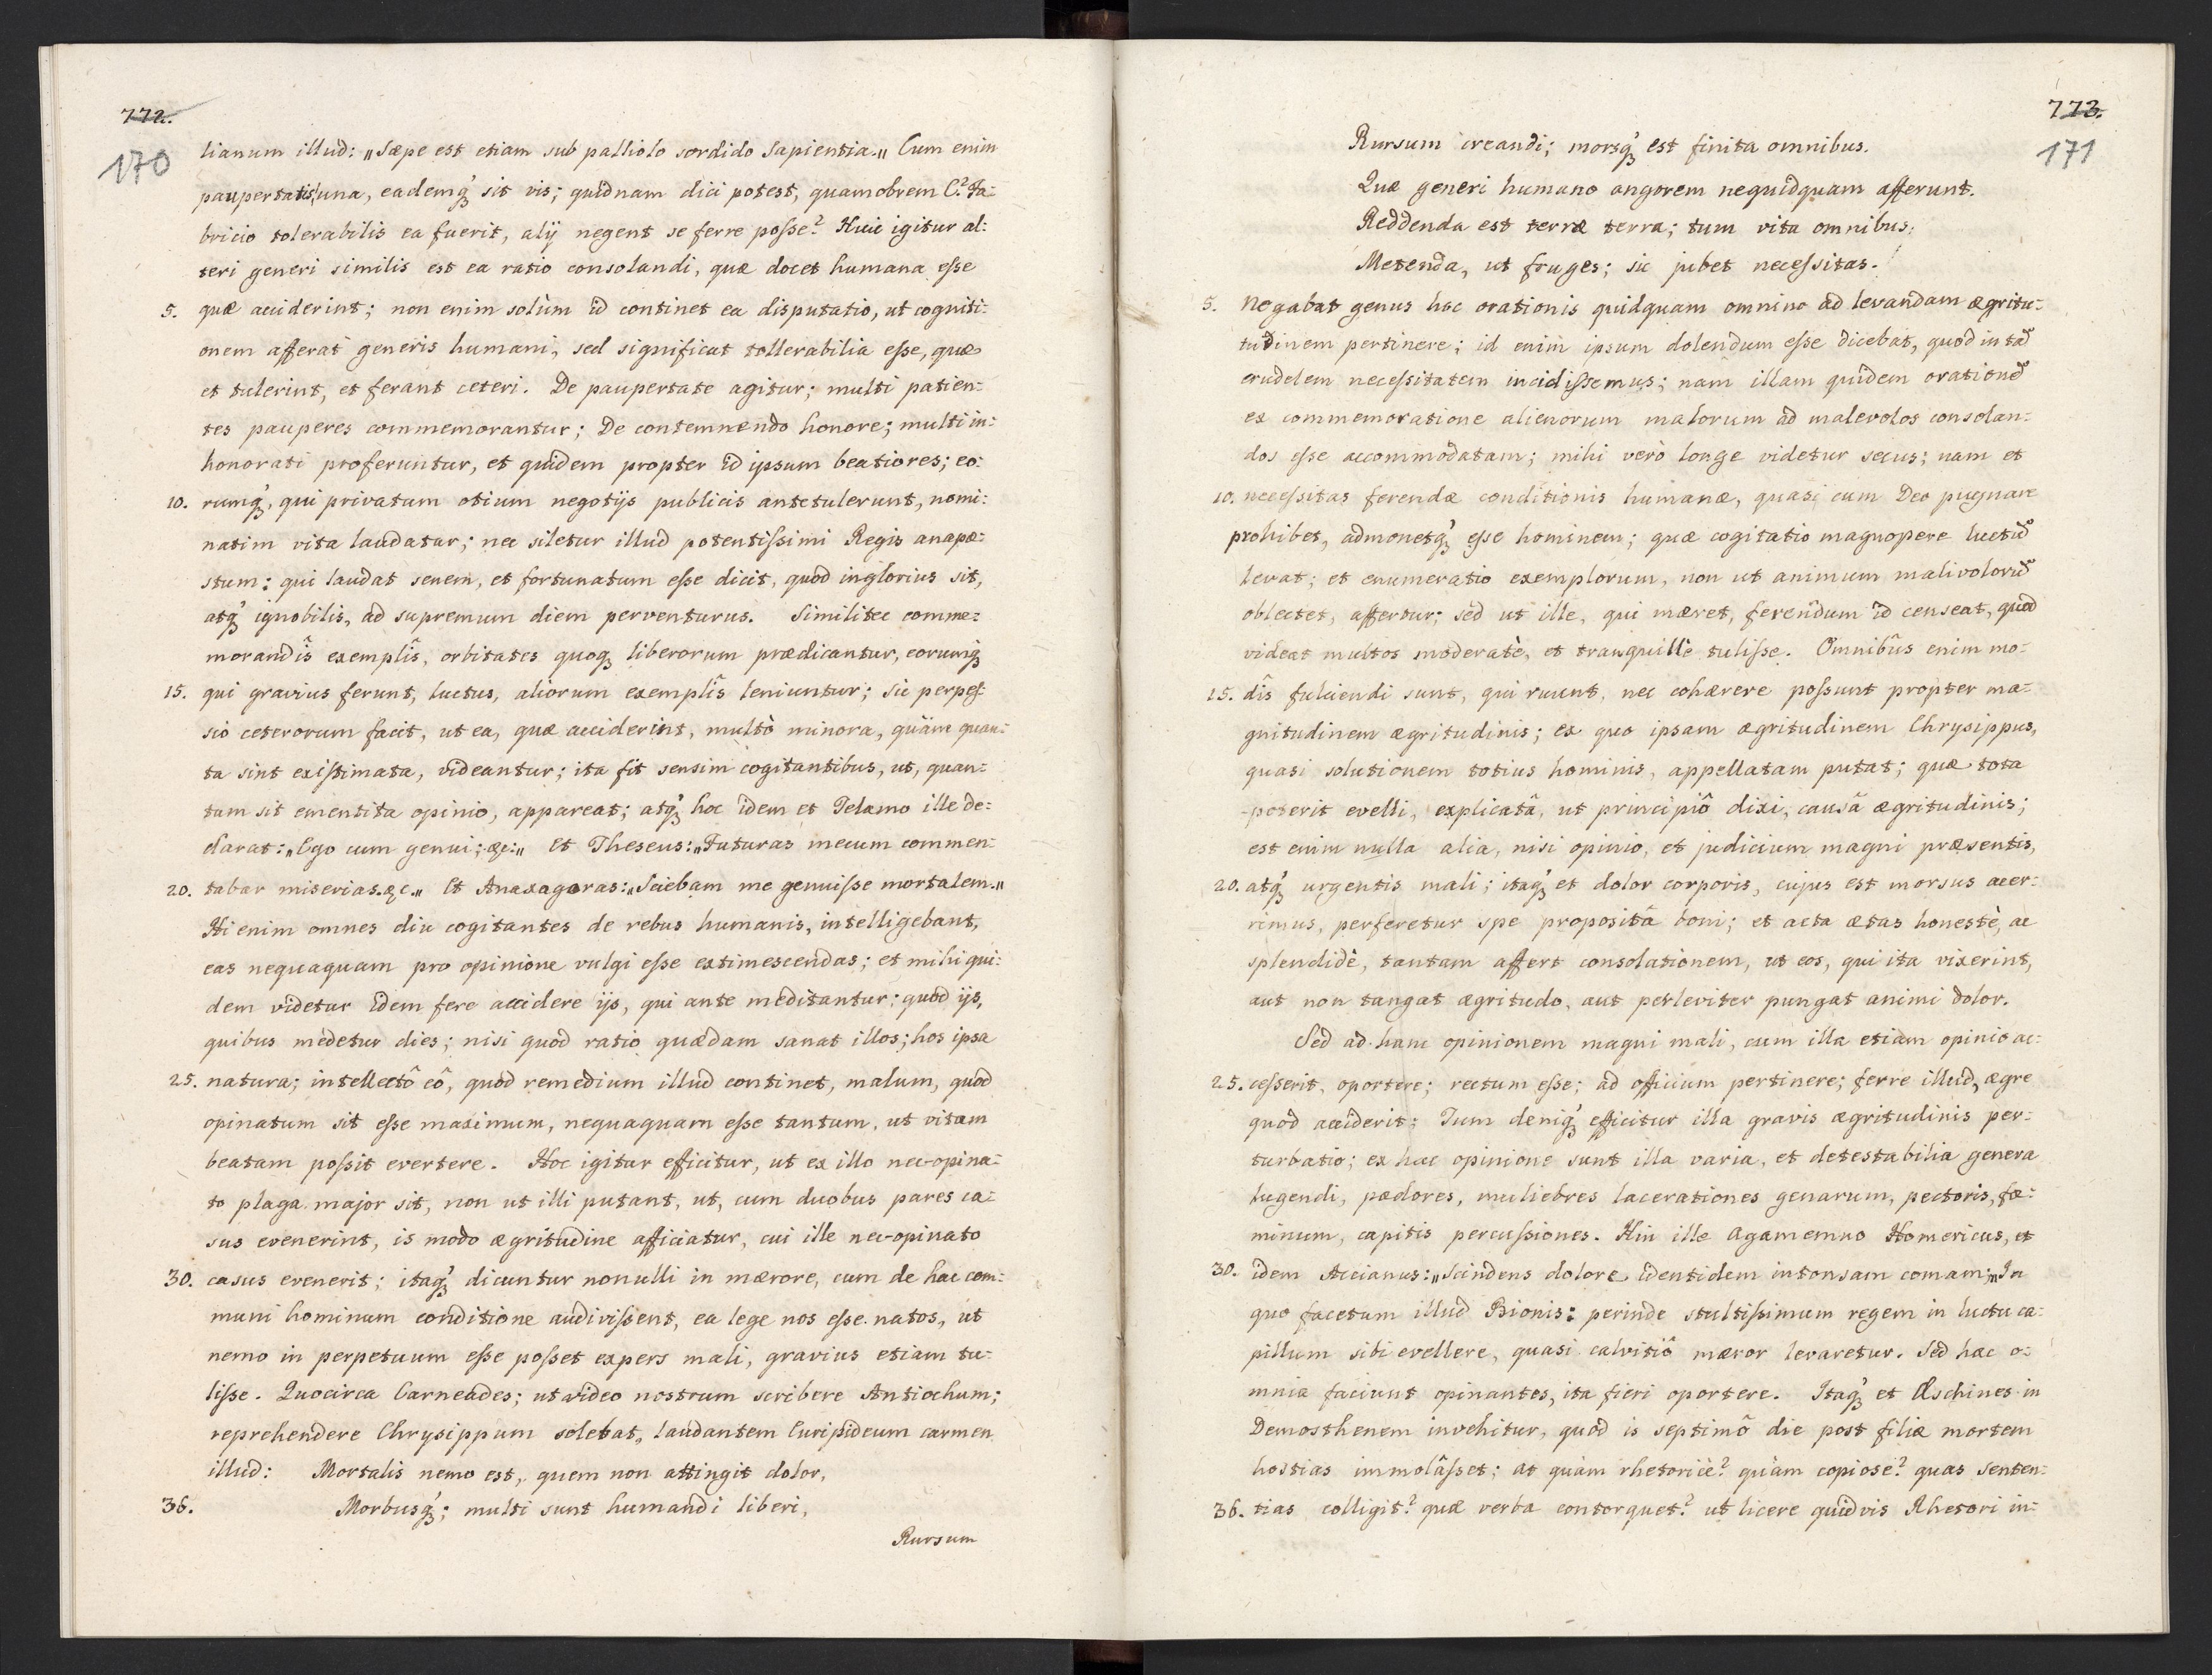 772.
170
lianum illud: „Sæpe est etiam sub palliolo sordido Sapientia.„ Cum enim
paupertatis una, eademq́ꝫ sit vis; quidnam dici potest, quamobrem C.º Fa=
bricio tolerabilis ea fuerit, alÿ negent se ferre posse? Huic igitur al:
teri generi similis est ea ratio consolandi, quæ docet humana esse
5. quæ acciderint; non enim solùm id continet ea disputatio, ut cogniti:
onem afferat generis humani, sed significat tollerabilia esse, quæ
et tulerint, et ferant ceteri. De paupertate agitur; multi patien:
tes pauperes commemorantur; De contemnendo honore; multi in:
honorati proferuntur, et quidem propter id ipsum beatiores; eo:
10. rumq́ꝫ, qui privatum otium negotÿs publicis antetulerunt, nomi:
natim vita laudatur; nec siletur illud potentissimi Regis anapæ:
stum: qui laudat senem, et fortunatum esse dicit, quod inglorius sit,
atq́ꝫ ignobilis, ad supremum diem perventurus. Similiter comme=
morandîs exemplîs, orbitates quoqꝫ liberorum prædicantur, eorumqꝫ
15. qui gravius ferunt, luctus, aliorum exemplîs leniuntur; sic perpes
sio ceterorum facit, ut ea, quæ acciderint, multò minora, quàm quan:
ta sint existimata, videantur; ita fit sensim cogitantibus, ut, quan:
tum sit ementita opinio, appareat; atq́ꝫ hoc idem et Telamo ille de:
clarat: „Ego cum genui; &c:„ Et Theseus: „Futuras mecum commen:
20. tabar miserias.&c.„ Et Anaxagoras: „Sciebam me genuisse mortalem.„
Hi enim omnes diu cogitantes de rebus humanis, intelligebant,
eas nequaquam pro opinione vulgi esse extimescendas; et mihi qui:
dem videtur idem fere accidere ÿs, qui ante meditantur; quod ÿs,
quibus medetur dies; nisi quod ratio quædam sanat illos; hos ipsa
25. natura; intellectô eô, quod remedium illud continet, malum, quod
opinatum sit esse maximum, nequaquam esse tantum, ut vitam
beatam possit evertere. Hoc igitur efficitur, ut ex illo nec-opina:
to plaga major sit, non ut illi putant, ut, cum duobus pares ca:
sus evenerint, is modo ægritudine afficiatur, cui ille nec-opinato
30. casus evenerit; itaq́ꝫ dicuntur nonulli in mærore, cum de hac com:
muni hominum conditione audivissent, ea lege nos esse natos, ut
nemo in perpetuum esse posset expers mali, gravius etiam tu:
lisse. Quocirca Carneades; ut video nostrum scribere Antiochum;
reprehendere Chrysippum solebat, laudantem Euripideum carmen
illud: Mortalis nemo est, quem non attingit dolor,
36. Morbusq́ꝫ; multi sunt humandi liberi,
Rursum
773.
171
Rursum creandi; morsq́ꝫ est finita omnibus.
Quæ generi humano angorem nequidquam afferunt.
Reddenda est terræ terra; tum vita omnibus:
Metenda, ut fruges; sic jubet necessitas.
5. negabat genus hoc orationis quidquam omnino ad levandam ægritu=
tudinem pertinere; id enim ipsum dolendum esse dicebat, quod in tã
crudelem necessitatem incidissemus; nam illam quidem orationẽ
ex commemoratione alienorum malorum ad malevolos consolan:
dos esse accommodatam; mihi verò longe videtur secus; nam et
10. necessitas ferendæ conditionis humanæ, quasi cum Deo pugnare
prohibet, admonetq́ꝫ esse hominem; quæ cogitatio magnopere luctũ
levat; et enumeratio exemplorum, non ut animum malivolorũ
oblectet, affertur; sed ut ille, qui mæret, ferendum id censeat, quod
videat multos moderatè, et tranquillè tulisse. Omnibûs enim mo=
15. dîs fulciendi sunt, qui ruunt, nec cohærere possunt propter ma=
gnitudinem ægritudinis; ex quo ipsam ægritudinem Chrysippus,
quasi solutionem totius hominis, appellatam putat; quæ tota
poterit evelli, explicatâ, ut principiô dixi, causâ ægritudinis;
est enim nulla alia, nisi opinio, et judicium magni præsentis,
20. atq́ꝫ urgentis mali; itaq́ꝫ et dolor corporis, cujus est morsus acer:
rimus, perferetur spe propositâ boni; et acta ætas honestè, ac
splendidè, tantam affert consolationem, ut eos, qui ita vixerint,
aut non tangat ægritudo, aut perleviter pungat animi dolor.
Sed ad hanc opinionem magni mali, cum illa etiam opinio ac:
25. cesserit, oportere; rectum esse; ad officium pertinere; ferre illud, ægre
quod acciderit; Tum deniq́ꝫ efficitur illa gravis ægritudinis per=
turbatio; ex hac opinione sunt illa varia, et detestabilia genera
lugendi, pædores, muliebres lacerationes genarum, pectoris, fæ:
minum, capitis percussiones. Hin ille Agamemno Homericus, et
30. idem Accianus: „Scindens dolore identidem intonsam comam;„ In
quo facetum illud Bionis: perinde stultissimum regem in luctu ca:
pillum sibi evellere, quasi calvitiô mæror levaretur. Sed hæc o:
mnia faciunt opinantes, ita fieri oportere. Itaq́ꝫ et Æschines in
Demosthenem invehitur, quod is septimô die post filiæ mortem
hostias immolâsset; at quàm rhetoricè? quàm copiose? quas senten:
36. tias colligit? quæ verba contorquet? ut licere quidvis Rhetori in=